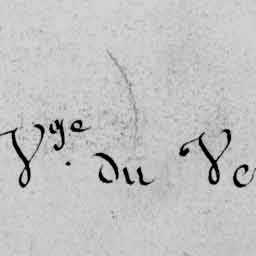 Vge. du Ve